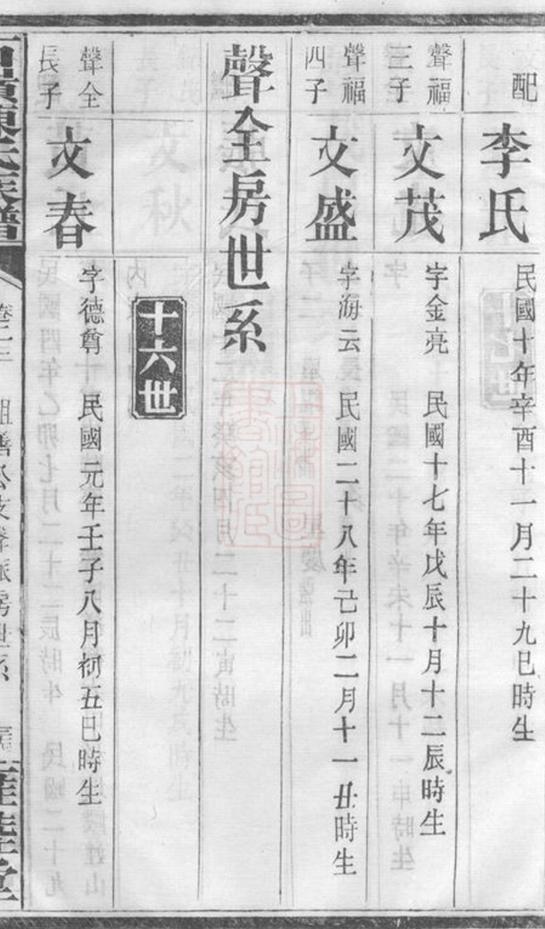 配
李氏
民國十年辛酉十一月二十九巳時生
聲福三子
文茂
字金亮 民國十七年戊辰十月十二辰時生
聲福四子
文盛
字海云 民國二十八年己卯二月十一丑時生
聲全房世系
十六世
聲全長子
文春
字德尊 民國元年壬子八月初五巳時生
陳氏族譜
世系
堂